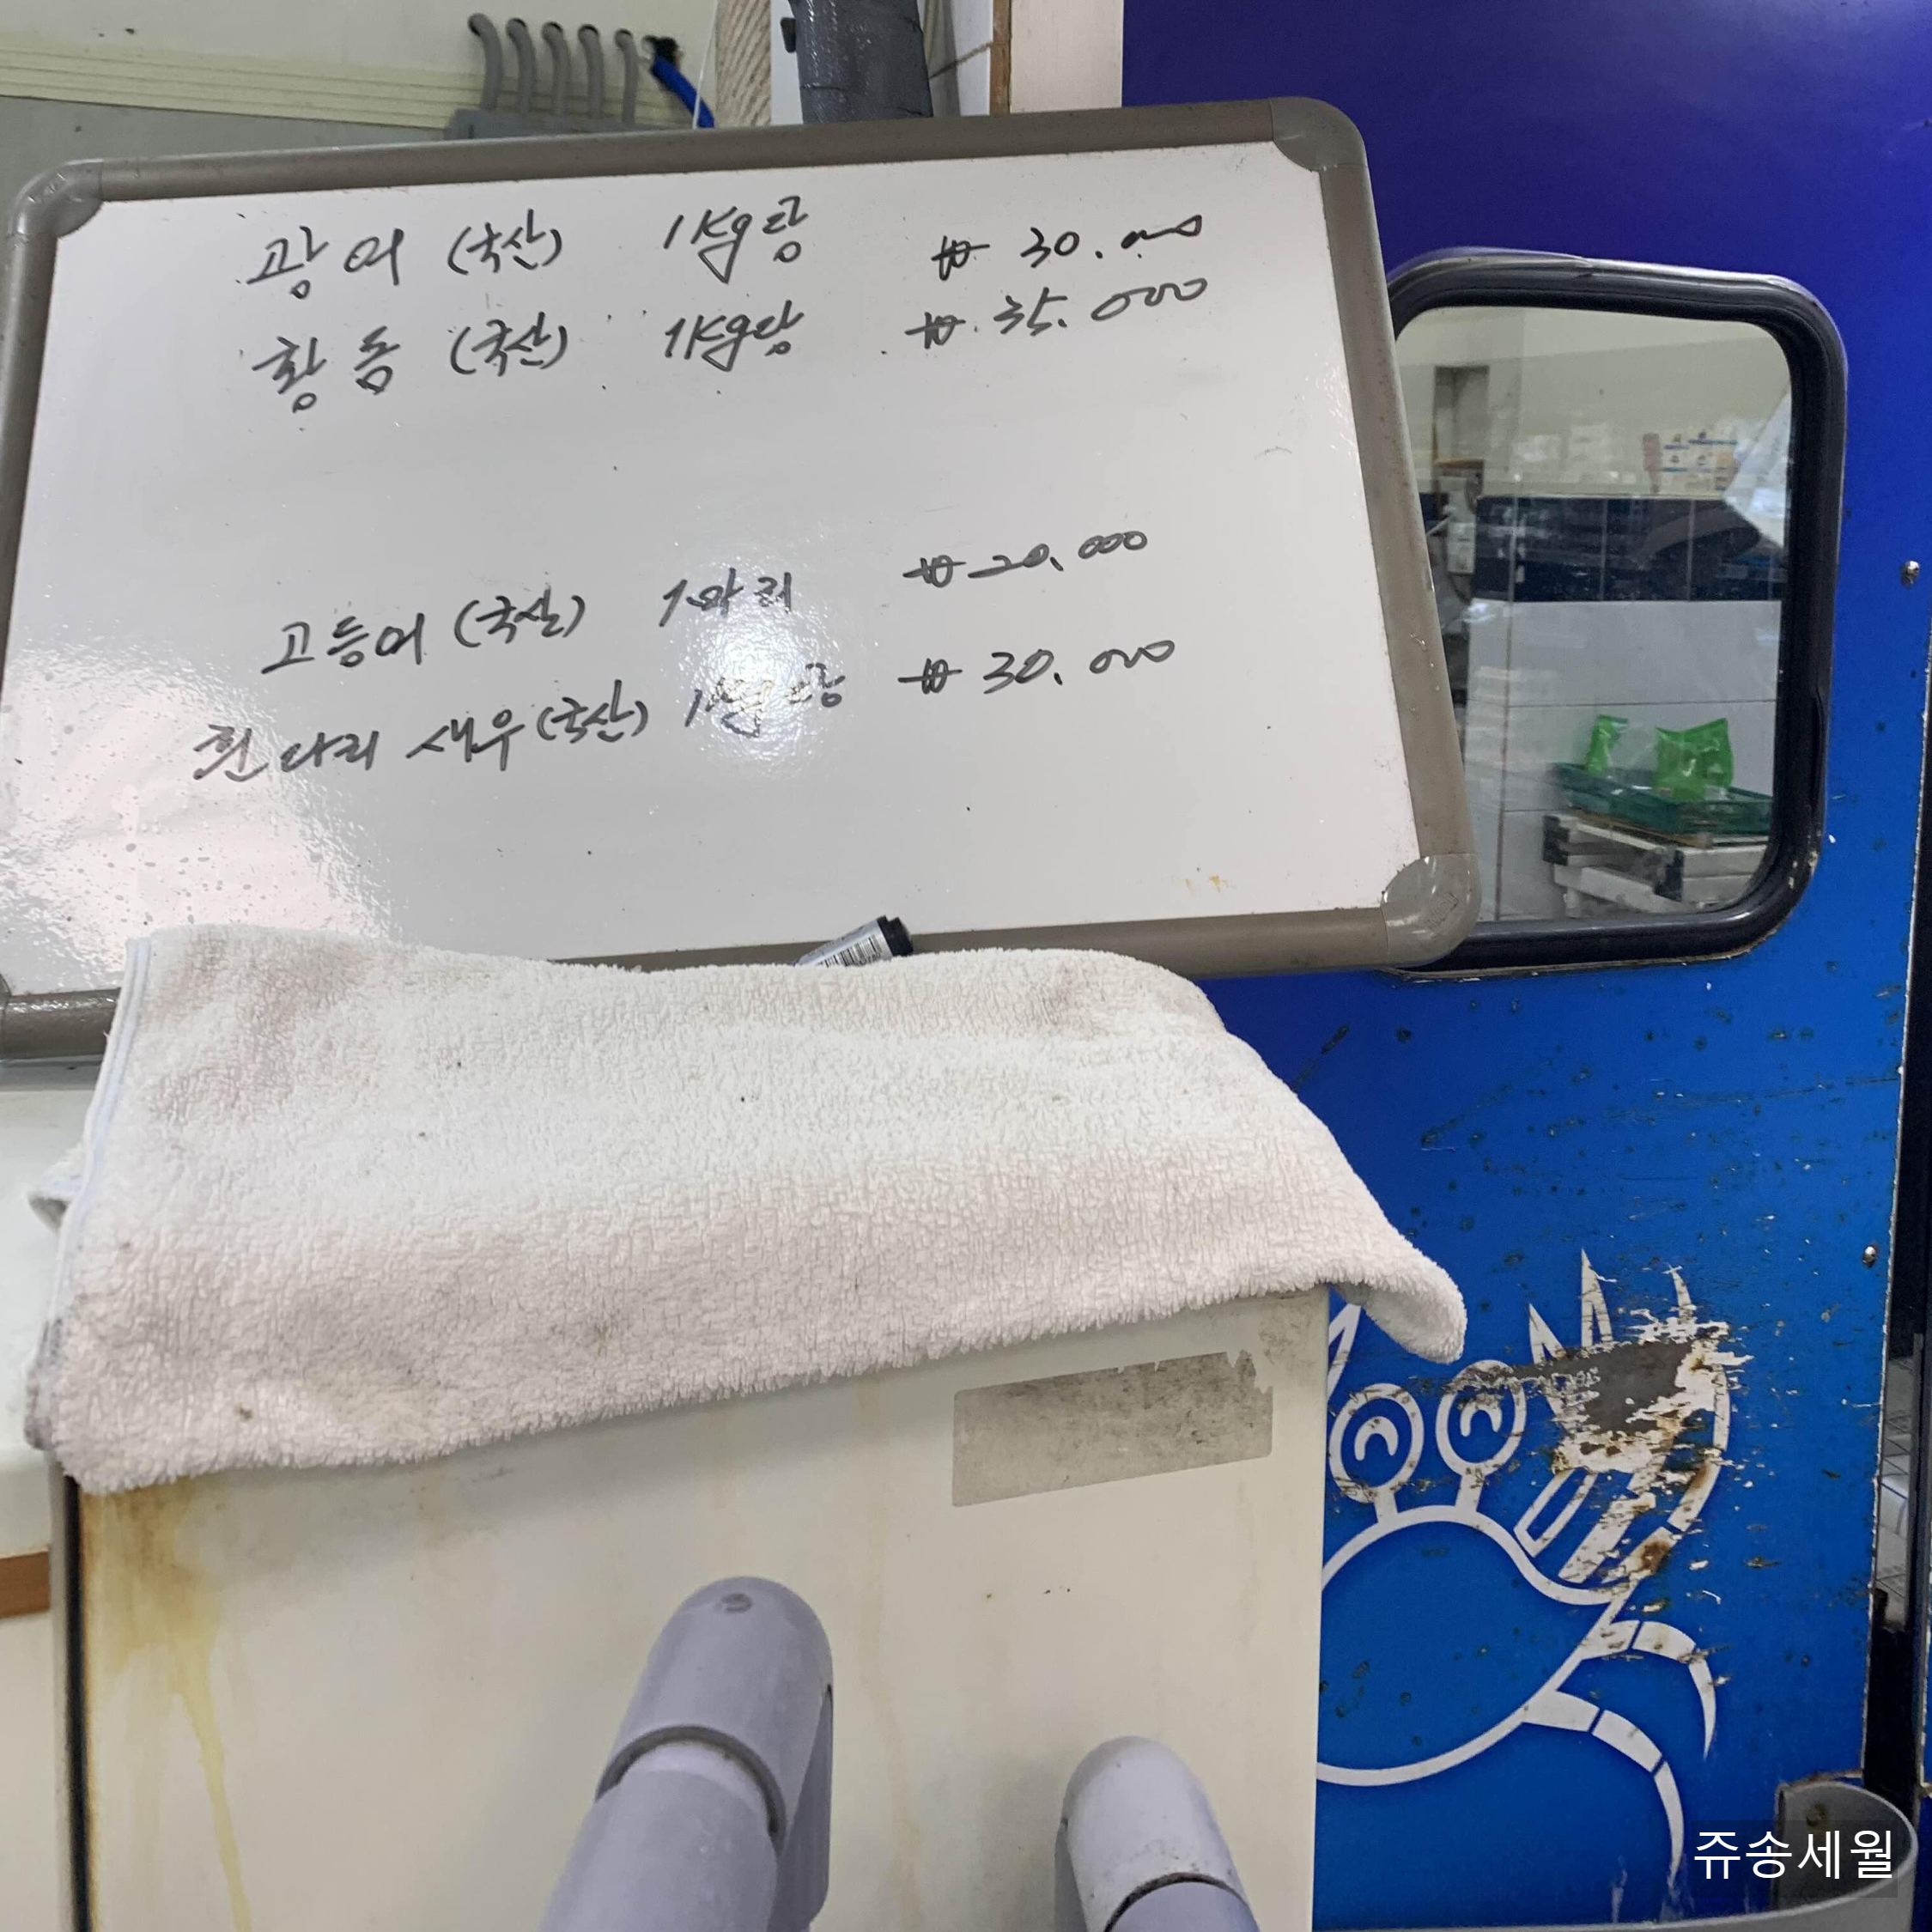 광어 (국산) 1kg당 ₩ 30.000
황돔 (국산) 1kg당 ₩ 35.000
고등어 (국산) 1마리 ₩ 20.000
흰다리 새우 (국산) 1kg당 ₩ 30.000
쥬송세월